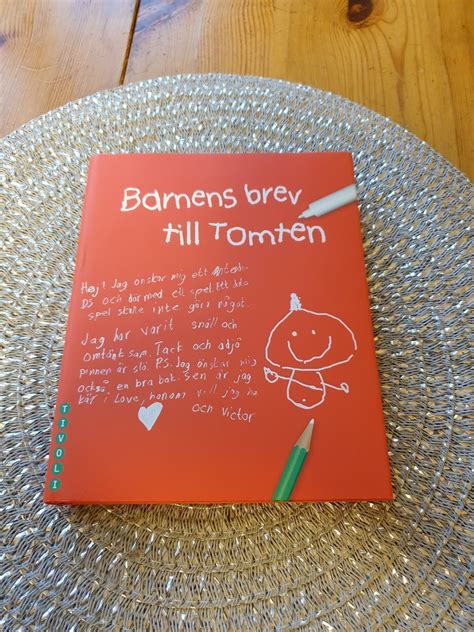 Barnens brev
till Tomten
Hej! Jag önskar mig ett
DS och därmed ett spel. Ett
spel skulle inte göra något.
Jag har varit snäll och
omtänksam. Tack och adjö
pennan är slö. P.S. Jag önskar mig
också en bra bok. Sen är jag
kär i Love, honom vill jag ha
och Victor
TIVOLI